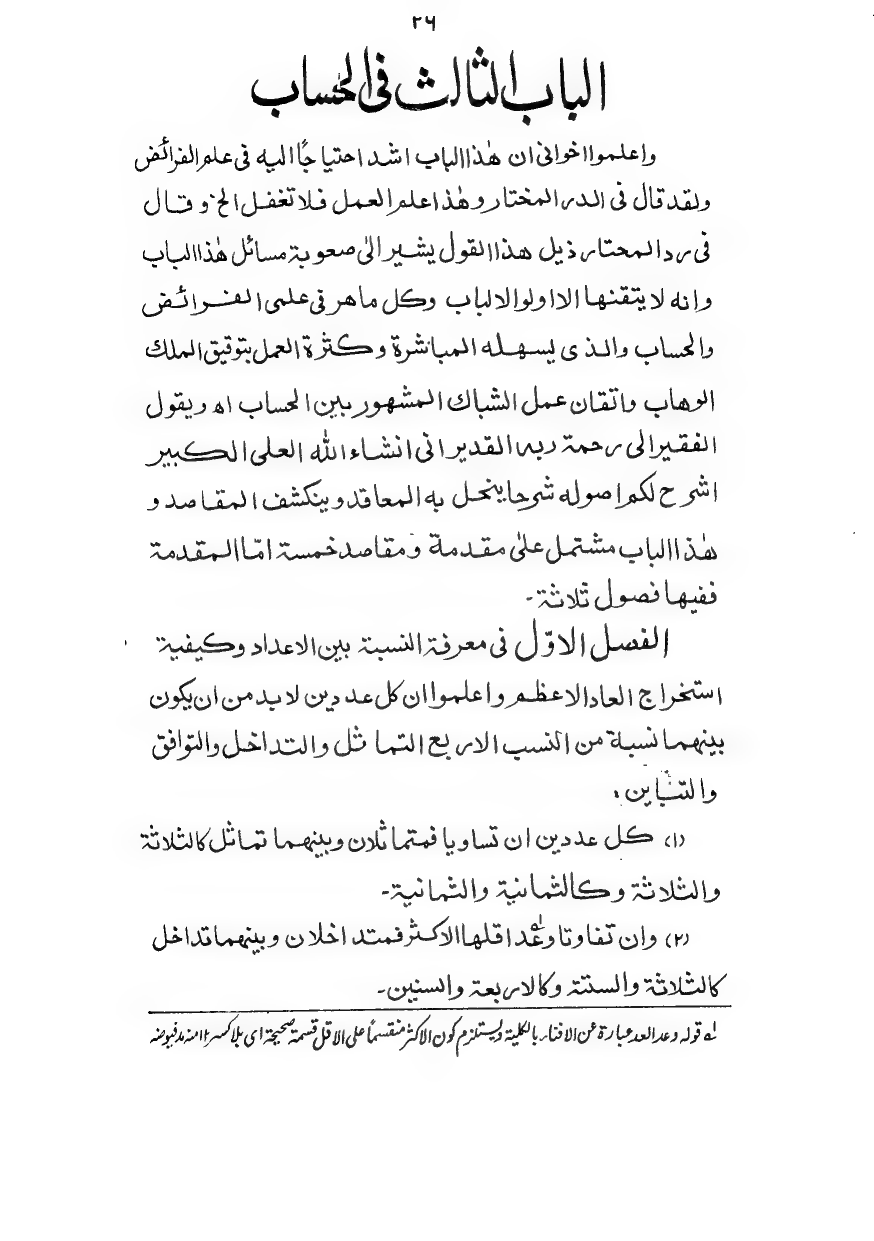 ٢٦
الباب الثالث فی الحساب
واعلموا اخوانی ان هٰذا الباب اشد احتیاجًا الیه فی علم الفرائض
ولقد قال فی الدر المختار وهٰذا علم العمل فلا تغفل الخ وقال
فی رد المحتار ذیل هذا القول یشیر الیٰ صعوبة مسائل هٰذا الباب
وانه لا یتقنها الا اولوا الالباب وکل ماهر فی علمی الفرائض
والحساب والذی یسهله المباشرة وکثرة العمل بتوفیق الملك
الوهاب واتقان عمل الشباك المشهور بین الحساب اه ویقول
الفقیر الی رحمة ربه القدیر انی انشاء اللّٰه العلی الکبیر
اشرح لکم اصوله شرحا ینحل به المعاقد وینکشف المقاصد و
هٰذا الباب مشتمل علیٰ مقدمة ومقاصد خمسة امّا المقدمة
ففیها فصول ثلاثة۔
الفصل الاوّل فی معرفة النسبة بین الاعداد وکیفیة
استخراج العاد الاعظم واعلموا ان کل عددین لا بد من ان یکون
بینهما نسبة من النسب الاربع التماثل والتداخل والتوافق
والتباین:
(١) کل عددین ان تساویا فمتماثلان وبینهما تماثل کالثلاثة
والثلاثة وکالثمانیة والثمانیة۔
(٢) وان تفاوتا وعدّ اقلها الاکثر فمتداخلان وبینهما تداخل
کالثلاثة والستة وکالاربعة والستین۔
لہ قوله وعد العد عبارة عن الافناء بالکلیة ویستلزم کون الاکثر منقسمًا علی الاقل قسمة صحیحة ای بلا کسر ١٢ منه